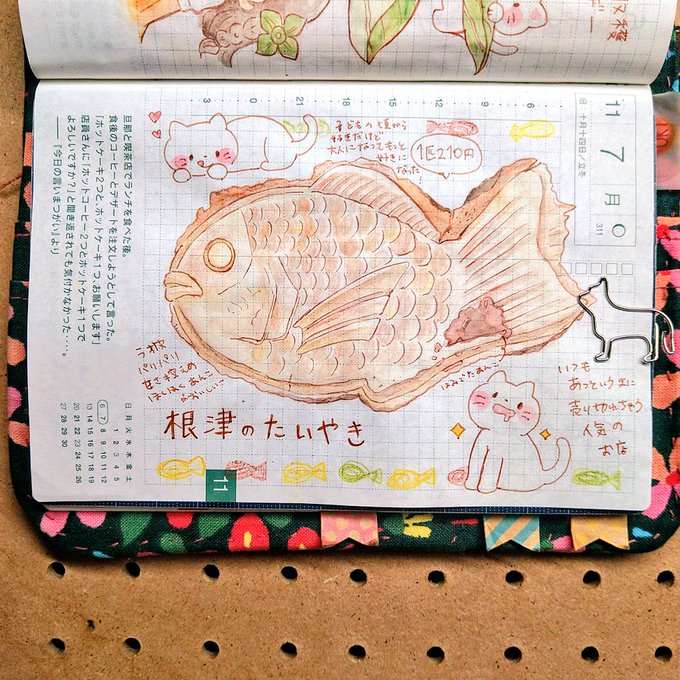 11
7
月
旧 十月十四日／立冬
311
3
0
21
18
子どもの頃から
好きだけど
大人になってもっと
好きに
なった!
1匹210円
旦那と喫茶店でランチを食べた後。
食後のコーヒーとデザートを注文しようとして言った。
「ホットケーキ2つと、ホットケーキ1つ、お願いします」
店員さんに「ホットコーヒー2つとホットケーキ1つで
よろしいですか?」と聞き返されても気付かなかった……。
──『今日の言いまつがい』より
パリパリ
甘さ控えめ
ほくほくあんこ
おいしい
はみでたあんこ
いつも
あっという間に
売り切れちゃう
人気の
お店
根津のたいやき
日 月 火 水 木 金 土
1 2 3 4 5
6 7 8 9 10 11 12
13 14 15 16 17 18 19
20 21 22 23 24 25 26
27 28 29 30
11